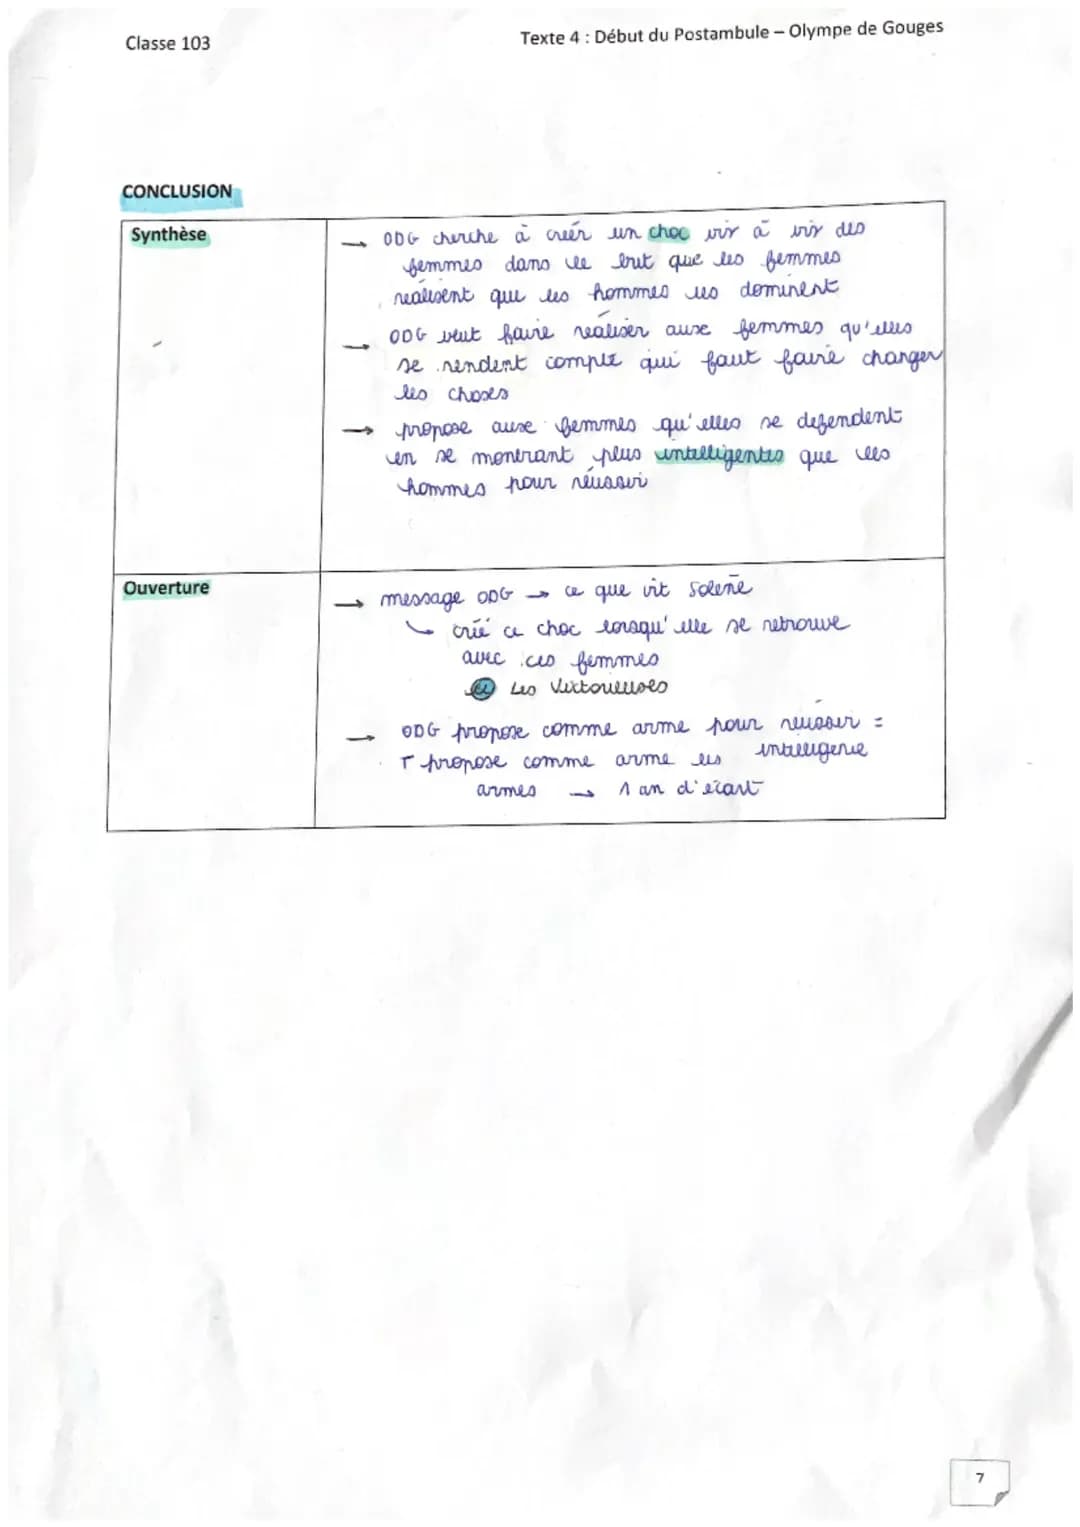 Classe 103
Texte 4 : Début du Postambule – Olympe de Gouges
CONCLUSION
Synthèse
→ ODG cherche à creér un choc vis à vis des
femmes dans le but que les femmes
réalisent que les hommes les dominent
→ ODG veut faire réaliser aux femmes qu'elles
se rendent compte qui faut faire changer
les choses
→ propose aux femmes qu'elles se defendent
en se montrant plus intelligentes que les
hommes pour réussir
Ouverture
→ message ODG → ce que vit Solene
↳ crée ce choc lorsqu'elle se retrouve
avec ces femmes
Les Victorieuses
→ ODG propose comme arme pour réussir =
intelligence
T propose comme arme les
armes → 1 an d'écart
7